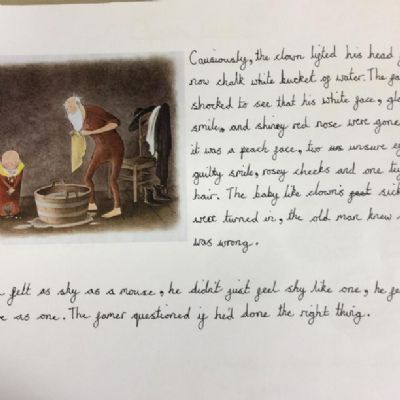 Causiously, the clown lifted his head
now chalk white bucket of water. The fa
shocked to see that his white face, gl
smile, and shiney red nose were gone
it was a peach face, two unsure ey
guilty smile, rosey cheeks and one tu
hair. The baby like clown's feet sick
were turned in, the old man knew
was wrong.
felt as shy as a mouse, he didn't just feel shy like one, he fe
as one. The famer questioned if he'd done the right thing.